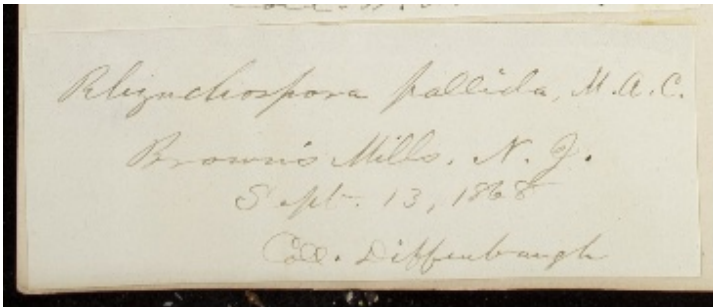 Rhynchospora pallida, M.A.C.
Brown's Mills. N. J.
Sept. 13, 1868
Coll. Diffenbaugh